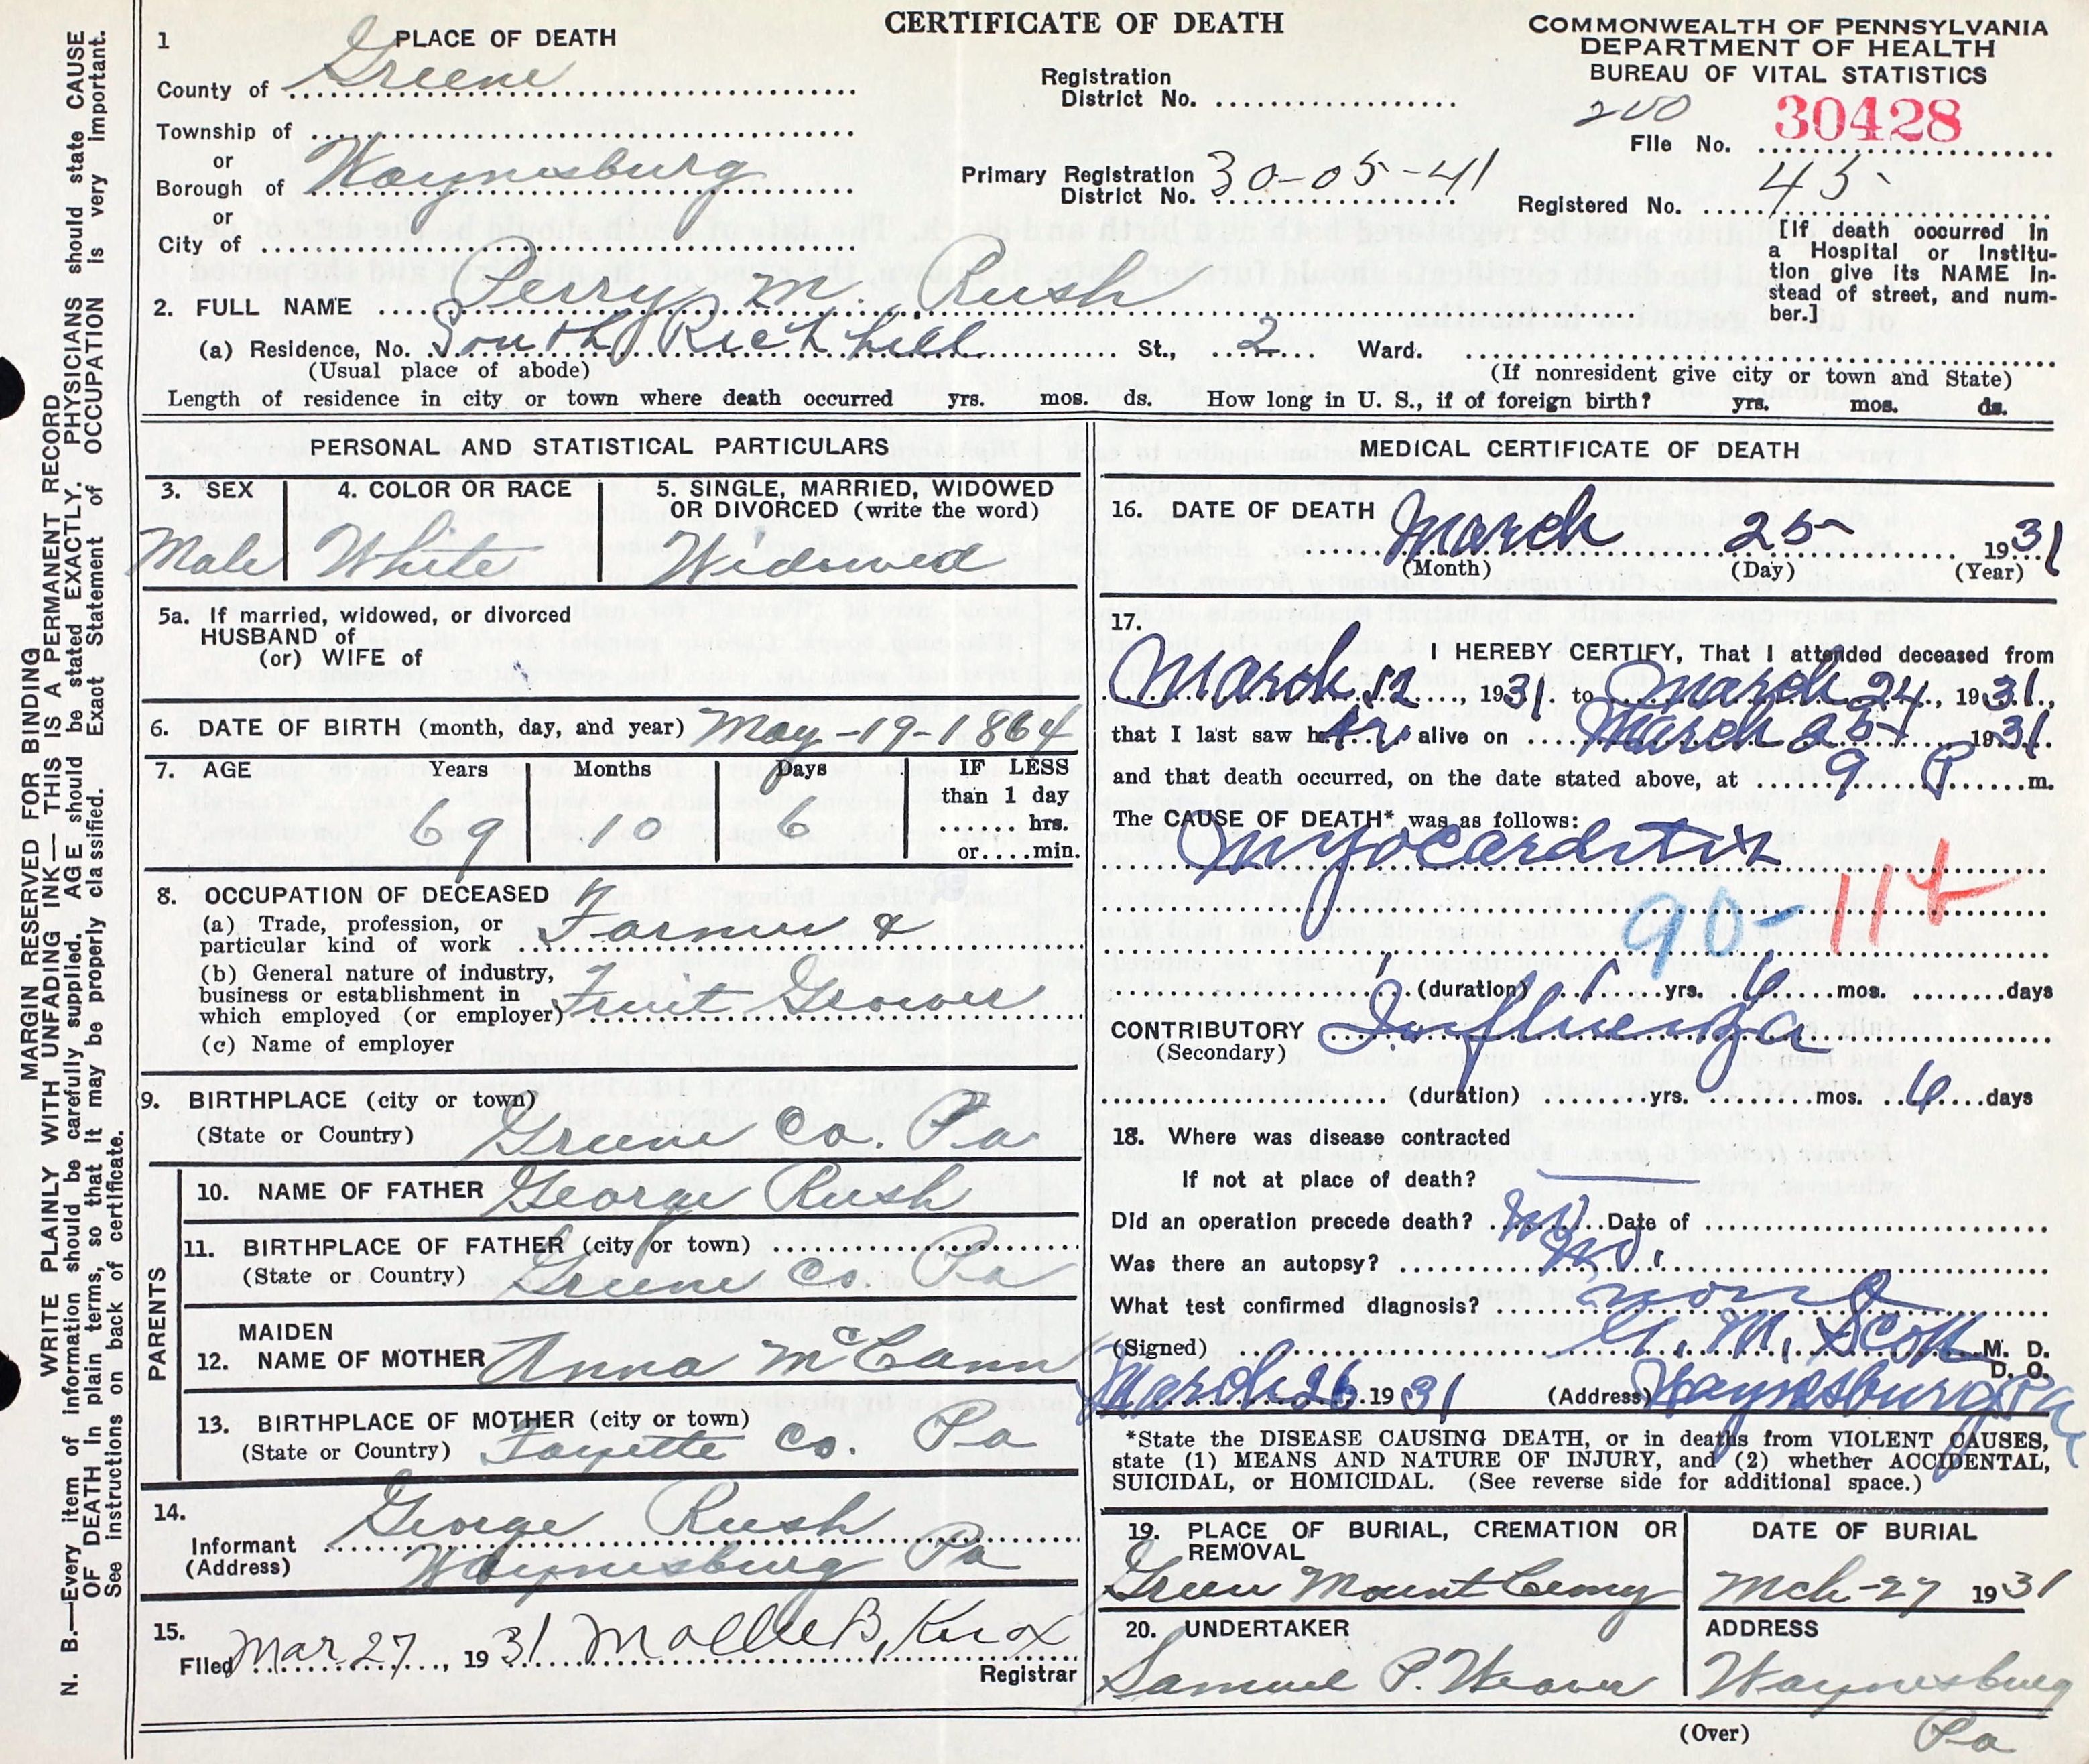 CERTIFICATE OF DEATH
COMMONWEALTH OF PENNSYLVANIA
DEPARTMENT OF HEALTH
BUREAU OF VITAL STATISTICS
1 PLACE OF DEATH
County of Greene
Township of
or
Borough of Waynesburg
or
City of
Registration
District No.
Primary Registration
District No. 30-05-41
200
File No. 30428
Registered No. 45
[If death occurred in
a Hospital or Institu-
tion give its NAME in-
stead of street, and num-
ber.]
2. FULL NAME Perry M. Rush
(a) Residence, No. South Richhill St., 2 Ward.
(Usual place of abode)
(If nonresident give city or town and State)
Length of residence in city or town where death occurred yrs. mos. ds. How long in U. S., if of foreign birth? yrs. mos. ds.
PERSONAL AND STATISTICAL PARTICULARS
3. SEX
Male
4. COLOR OR RACE
White
5. SINGLE, MARRIED, WIDOWED
OR DIVORCED (write the word)
Widowed
5a. If married, widowed, or divorced
HUSBAND of
(or) WIFE of
6. DATE OF BIRTH (month, day, and year) May-19-1864
7. AGE Years Months Days IF LESS
than 1 day
.... hrs.
or....min.
69 10 6
8. OCCUPATION OF DECEASED
(a) Trade, profession, or
particular kind of work Farmer &
(b) General nature of industry,
business or establishment in
which employed (or employer) Fruit Grower
(c) Name of employer
9. BIRTHPLACE (city or town)
(State or Country) Greene Co. Pa
PARENTS
10. NAME OF FATHER George Rush
11. BIRTHPLACE OF FATHER (city or town)
(State or Country) Greene Co. Pa
MAIDEN
12. NAME OF MOTHER Anna McCann
13. BIRTHPLACE OF MOTHER (city or town)
(State or Country) Fayette Co. Pa
14.
Informant George Rush
(Address) Waynesburg Pa
15.
Filed Mar 27, 1931 Mollie B. Knox
Registrar
MEDICAL CERTIFICATE OF DEATH
16. DATE OF DEATH
March 25 1931
(Month) (Day) (Year)
17.
I HEREBY CERTIFY, That I attended deceased from
March 12, 1931. to March 24, 1931.,
that I last saw h alive on March 25 1931.
and that death occurred, on the date stated above, at 9 P m.
The CAUSE OF DEATH* was as follows:
Myocarditis
90-11
(duration) 1 yrs. 6 mos. days
CONTRIBUTORY Influenza
(Secondary)
(duration) yrs. mos. 6 days
18. Where was disease contracted
If not at place of death?
Did an operation precede death? No Date of
Was there an autopsy? No.
What test confirmed diagnosis? none
(Signed) M. Scott M. D.
D. O.
March 26 1931 (Address) Waynesburg Pa
*State the DISEASE CAUSING DEATH, or in deaths from VIOLENT CAUSES,
state (1) MEANS AND NATURE OF INJURY, and (2) whether ACCIDENTAL,
SUICIDAL, or HOMICIDAL. (See reverse side for additional space.)
19. PLACE OF BURIAL, CREMATION OR
REMOVAL
Green Mount Cemy
DATE OF BURIAL
Mch-27 1931
20. UNDERTAKER
Samuel P. Weaver
ADDRESS
Waynesburg
Pa
(Over)
MARGIN RESERVED FOR BINDING
WRITE PLAINLY WITH UNFADING INK—THIS IS A PERMANENT RECORD
N. B.—Every item of information should be carefully supplied. AGE should be stated EXACTLY. PHYSICIANS should state CAUSE
OF DEATH in plain terms, so that it may be properly classified. Exact Statement of OCCUPATION is very important.
See instructions on back of certificate.